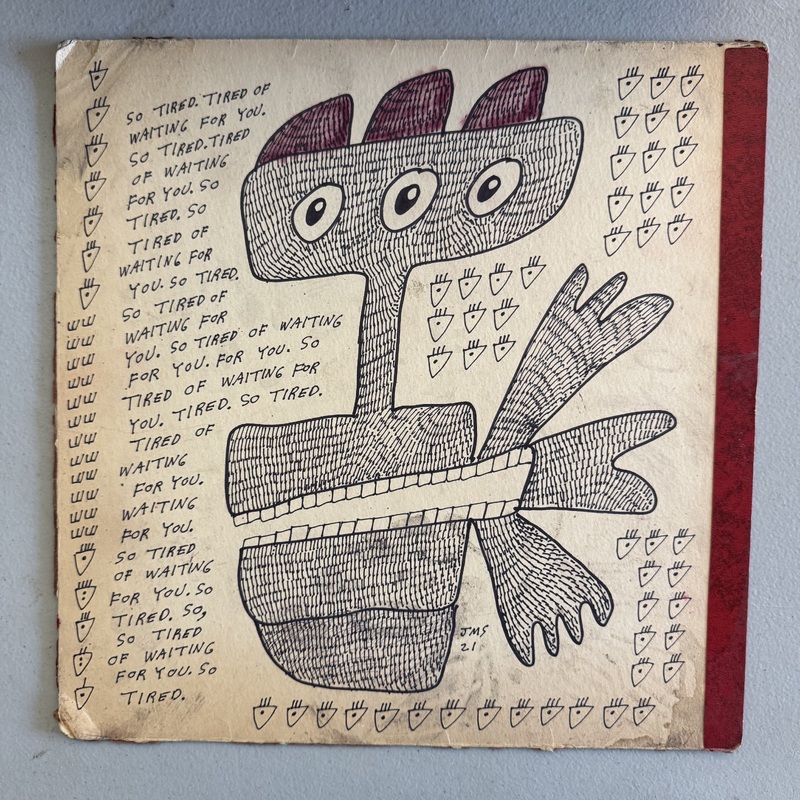 SO TIRED. TIRED OF
WAITING FOR YOU.
SO TIRED. TIRED
OF WAITING
FOR YOU. SO
TIRED. SO
TIRED OF
WAITING FOR
YOU. SO TIRED.
SO TIRED OF
WAITING FOR
YOU. SO TIRED OF WAITING
FOR YOU. FOR YOU. SO
TIRED OF WAITING FOR
YOU. TIRED. SO TIRED.
TIRED OF
WAITING
FOR YOU.
WAITING
FOR YOU.
SO TIRED
OF WAITING
FOR YOU. SO
TIRED. SO,
SO TIRED
OF WAITING
FOR YOU. SO
TIRED.
JMS
21